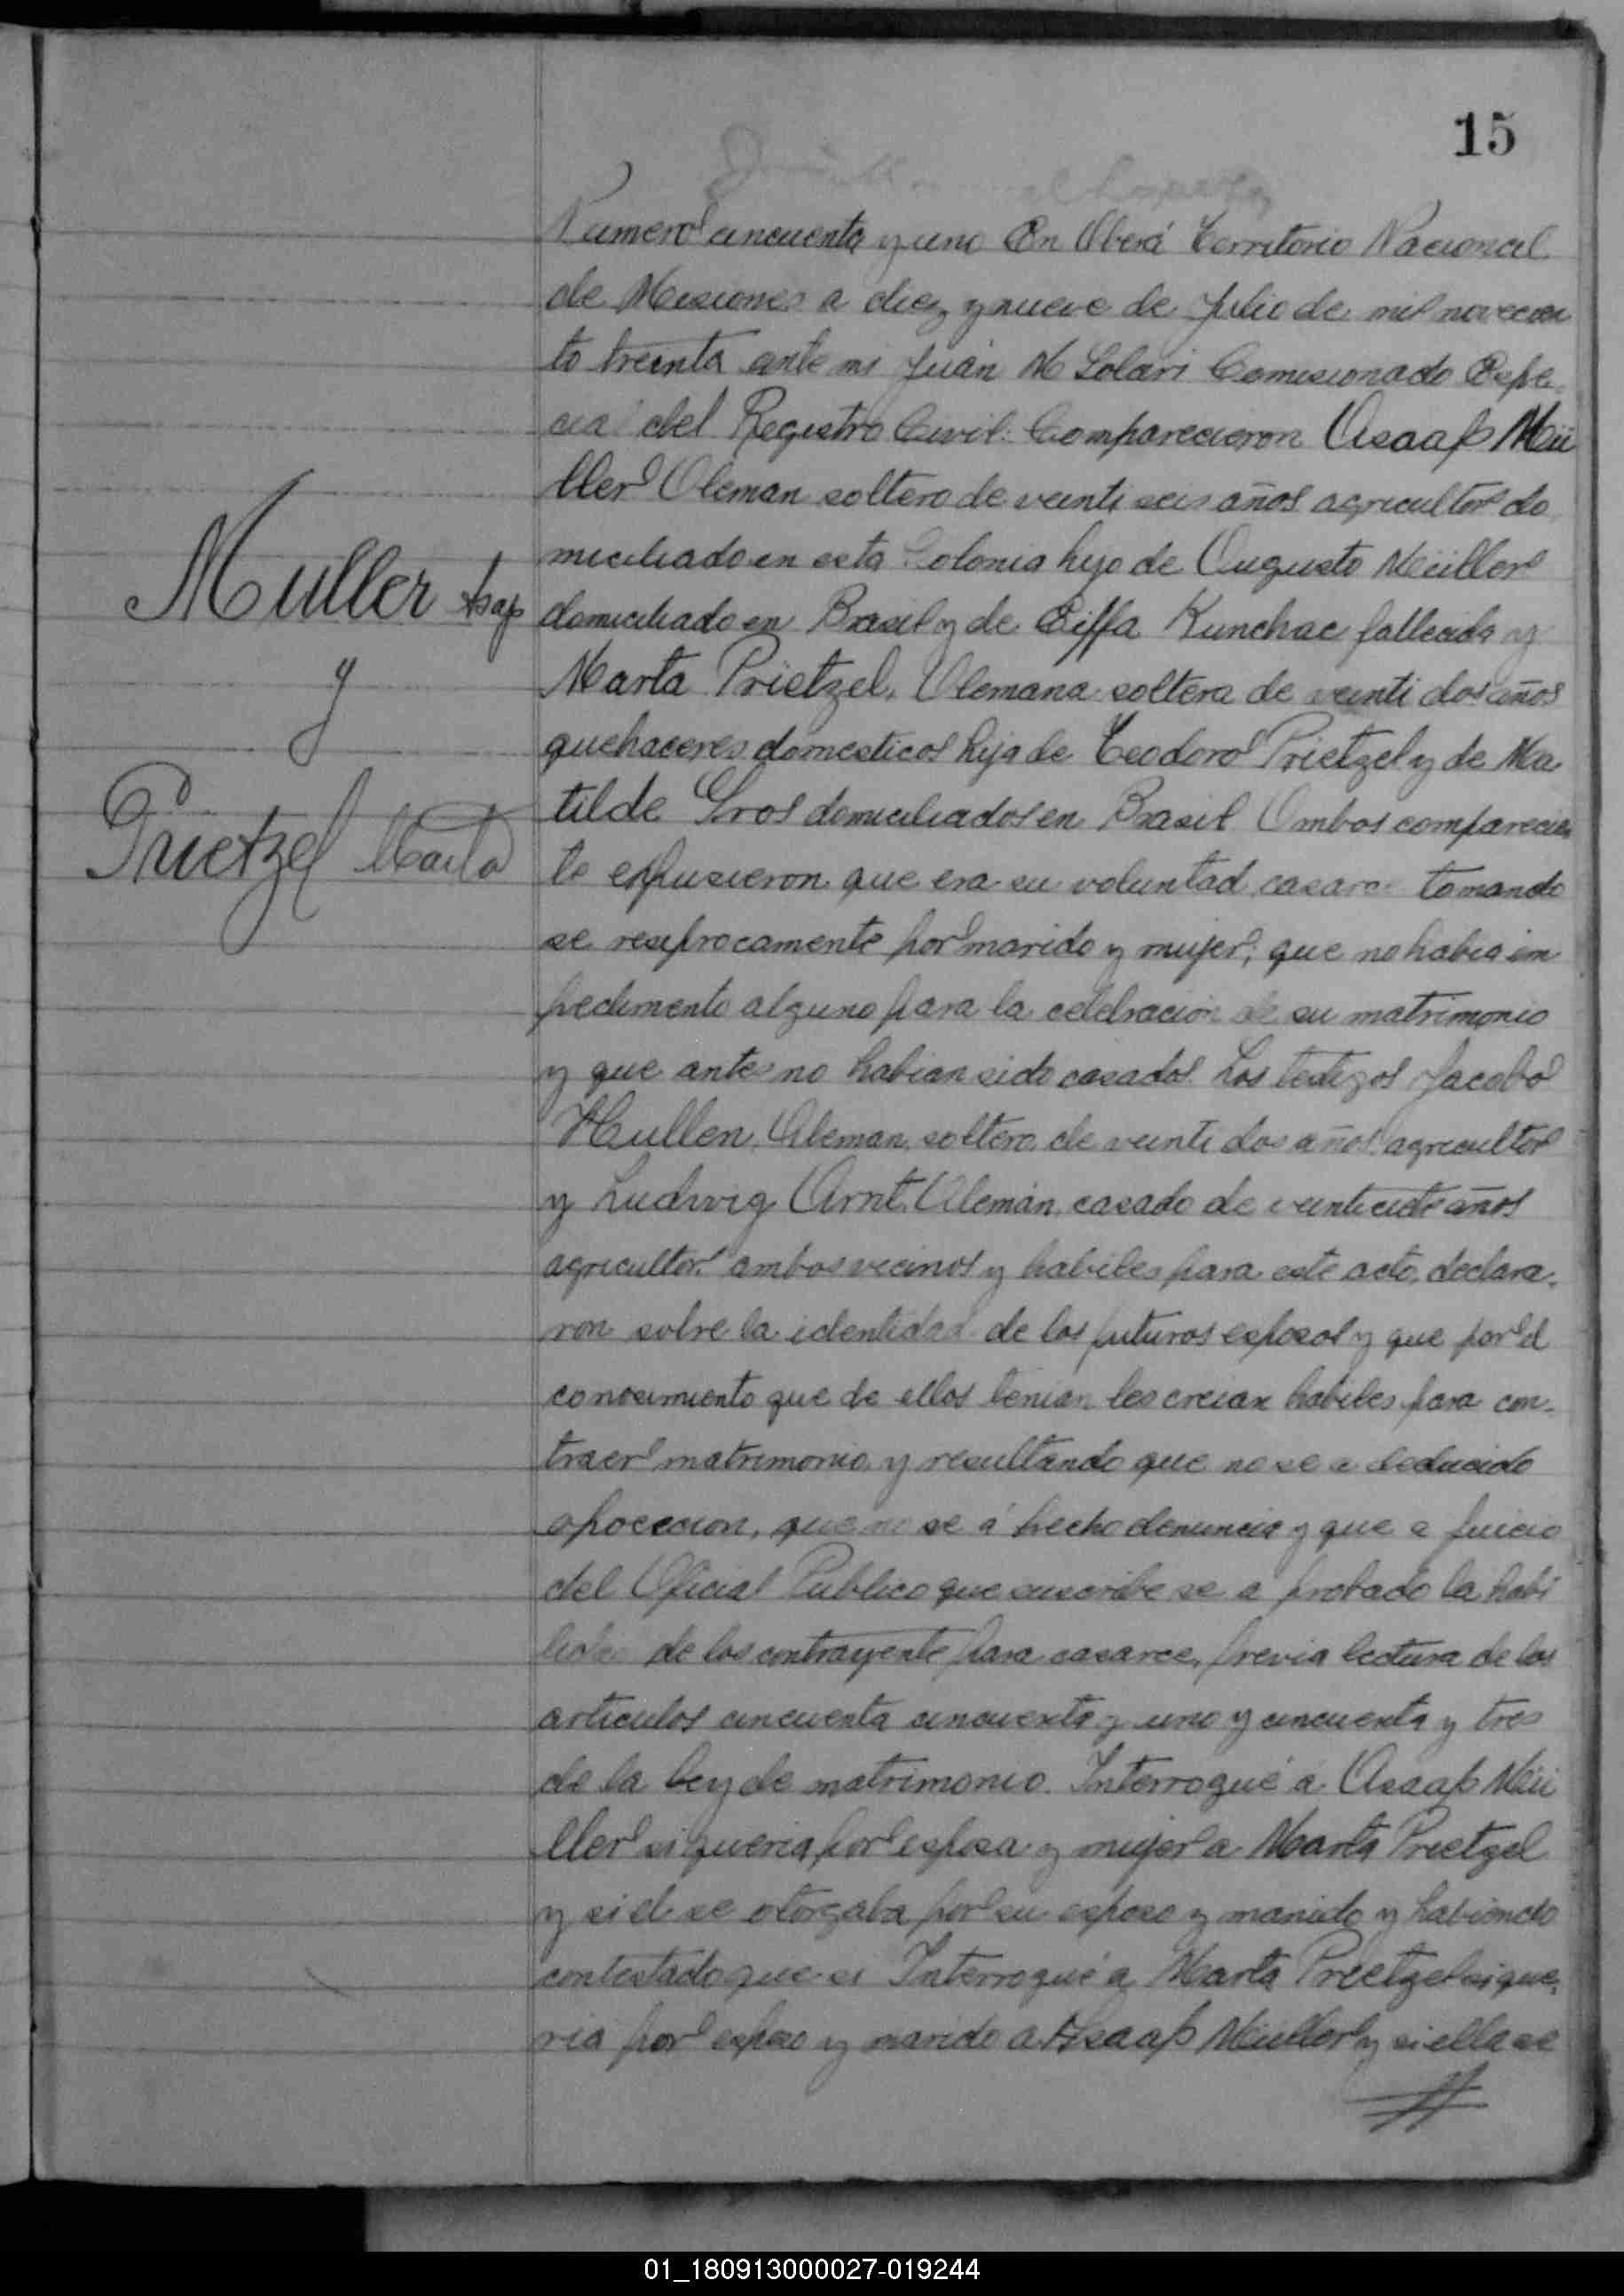 15
Numero cincuenta y uno En Oberá Territorio Nacional
de Misiones a diez y nueve de Julio de mil novecien
to treinta ante mi Juan M Solari Comisionado Espe
cial del Registro Civil: Comparecieron Asaaf Mü
ller Aleman soltero de veinti seis años agricultor do
miciliado en esta Colonia hijo de Augusto Müller
domiciliado en Brasil y de Eiffa Kunchac fallecida y
Marta Prietzel, Alemana soltera de veinti dos años
quehaceres domesticos hija de Teodoro Prietzel y de Ma
tilde Gros domiciliados en Brasil Ambos comparecien
te expusieron que era su voluntad casarce tomando
se resiprocamente por marido y mujer; que no habia im
pedimento alguno para la celebracion de su matrimonio
y que antes no habian sido casados. Los testigos Jacobo
Hullen, Aleman, soltero, de veinti dos años agricultor
y Ludwig Arnt, Alemán, casado de años
agricultor, ambos vecinos y habiles para este acto, declara-
ron sobre la identidad de los futuros esposos y que por el
conosimiento que de ellos tenian les creian habiles para con-
traer matrimonio, y resultando que no se a deducido
opocecion, que no se á hecho denuncia y que a juicio
del Oficial Publico que suscribe se a probado la habi
de los contrayente para casarce, previa lectura de los
articulos cincuenta cincuenta y uno y cincuenta y tres
de la ley de matrimonio. Interrogué á Asaaf Mü
ller si queria por esposa y mujer a Marta Prietzel
y si el se otorgaba por su esposo y marido y habiendo
contestado que si Interrogué a Marta Prietzel si que-
ria por esposo y marido a Asaaf Müller y si ella se
Muller Asaf
y
Prietzel Marta
01_180913000027-019244